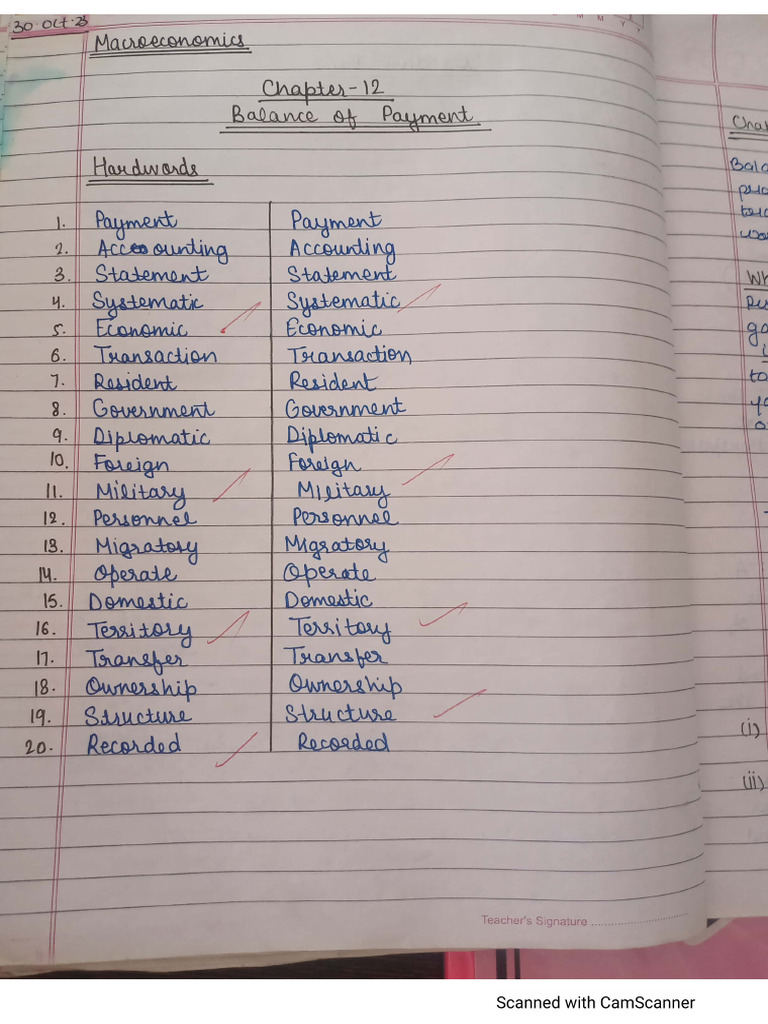 30 Oct.23
M M Y Y
Macroeconomics
Chapter-12
Balance of Payment
Hardwords
1. Payment Payment
2. Accounting Accounting
3. Statement Statement
4. Systematic Systematic
5. Economic Economic
6. Transaction Transaction
7. Resident Resident
8. Government Government
9. Diplomatic Diplomatic
10. Foreign Foreign
11. Military Military
12. Personnel Personnel
13. Migratory Migratory
14. Operate Operate
15. Domestic Domestic
16. Territory Territory
17. Transfer Transfer
18. Ownership Ownership
19. Structure Structure
20. Recorded Recorded
(i)
(ii)
Teacher's Signature
Scanned with CamScanner